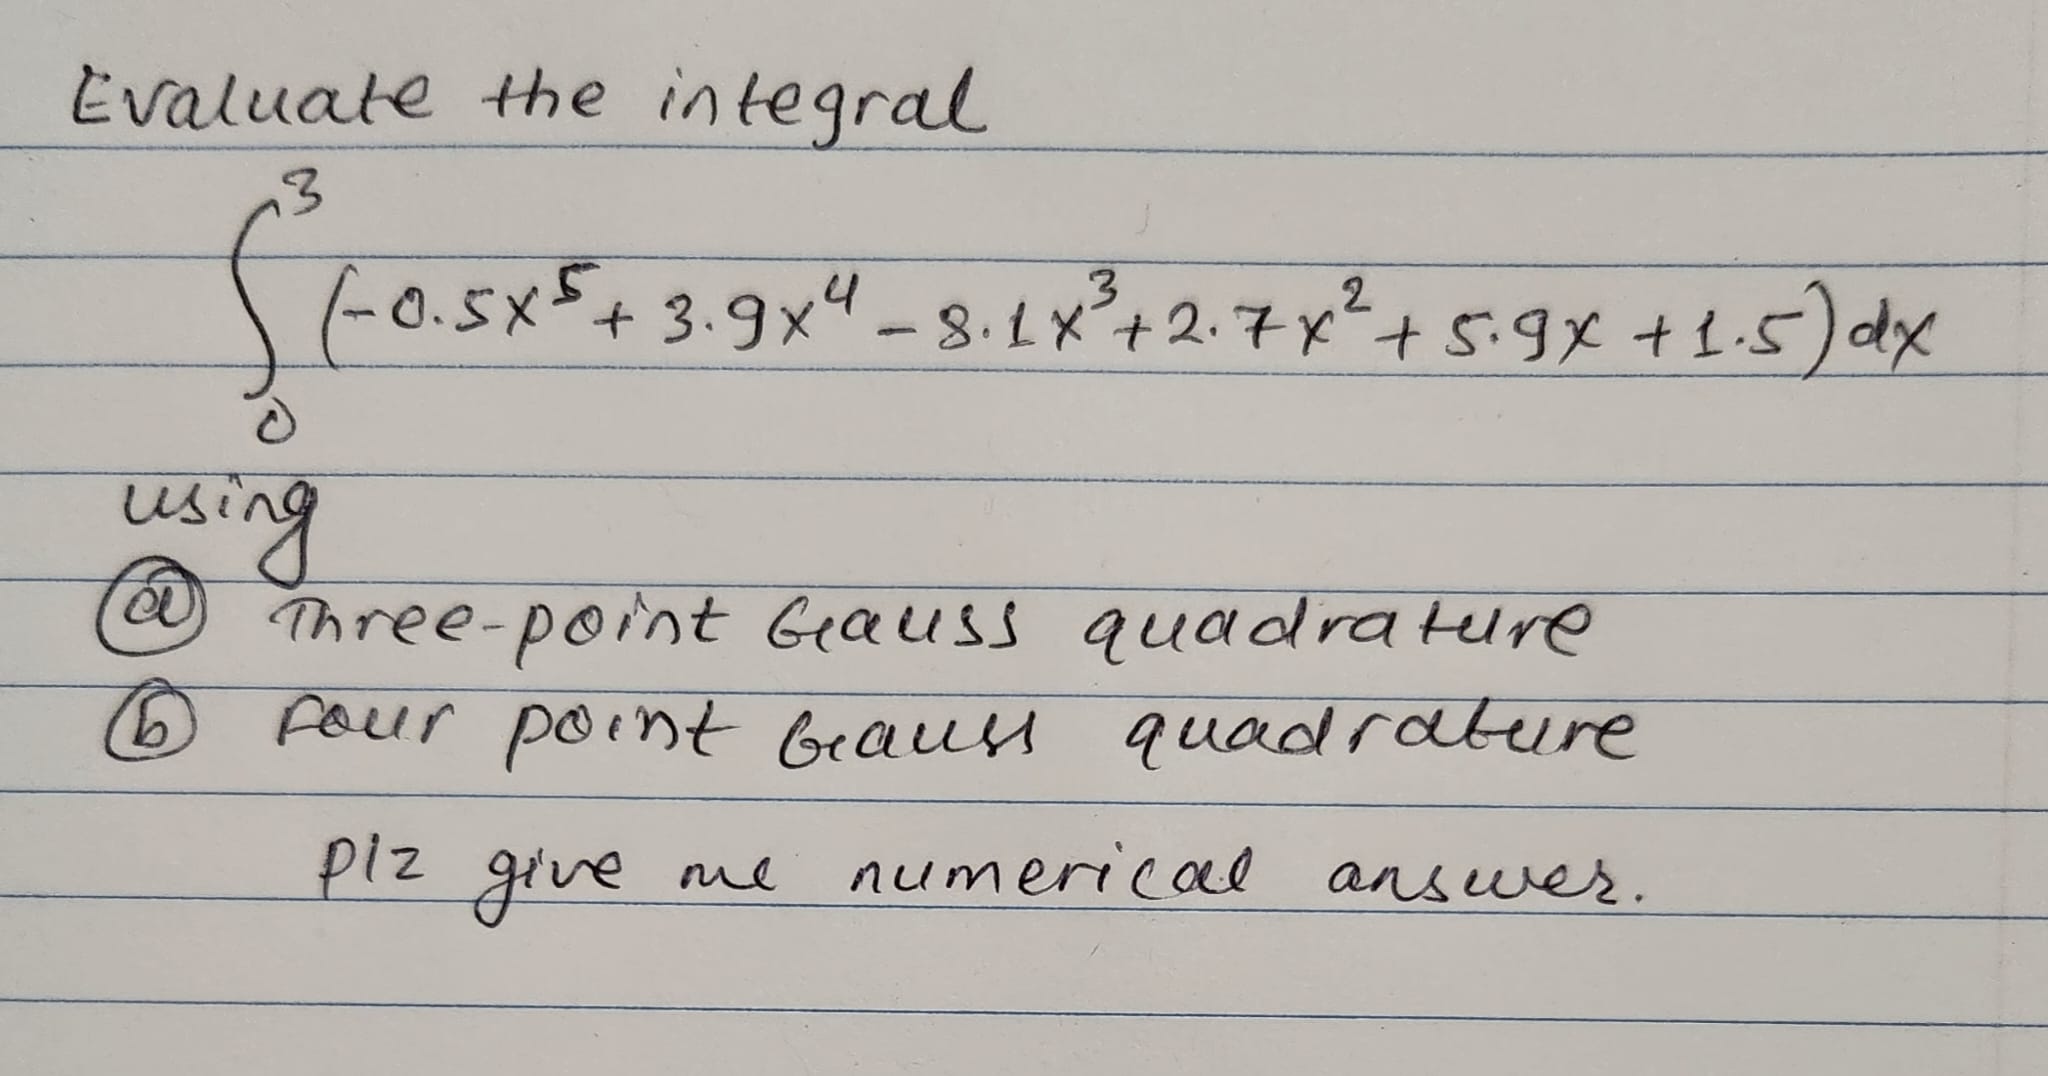 Evaluate the integral
∫₀³ (-0.5x⁵ + 3.9x⁴ - 8.1x³ + 2.7x² + 5.9x + 1.5) dx
using
ⓐ Three-point Gauss quadrature
ⓑ four point Gauss quadrature
plz give me numerical answer.